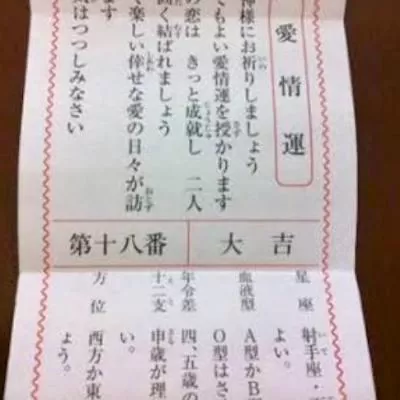 愛情運
神様にお祈りしましょう
てもよい愛情運を授かります
の恋は きっと成就し 二人
固く結ばれましょう
て楽しい倖せな愛の日々が訪
ます
気はつつしみなさい
第十八番 大吉
星座 射手座・
よい。
血液型 A型かB
O型はさ
年令差 四、五歳の
十二支 申歳が理
い。
方位 西方か東
ょう。